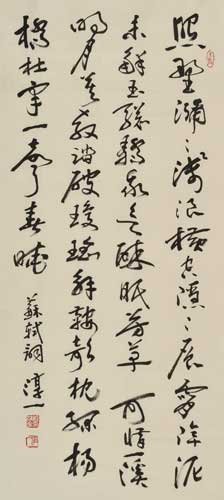 照野瀰〻淺浪橫空隱〻層霄障泥
未解玉驄驕我欲醉眠芳草可惜一溪
明月莫教踏破瓊瑤解鞍欹枕綠楊
橋杜宇一聲春曉
蘇軾詞 淳一